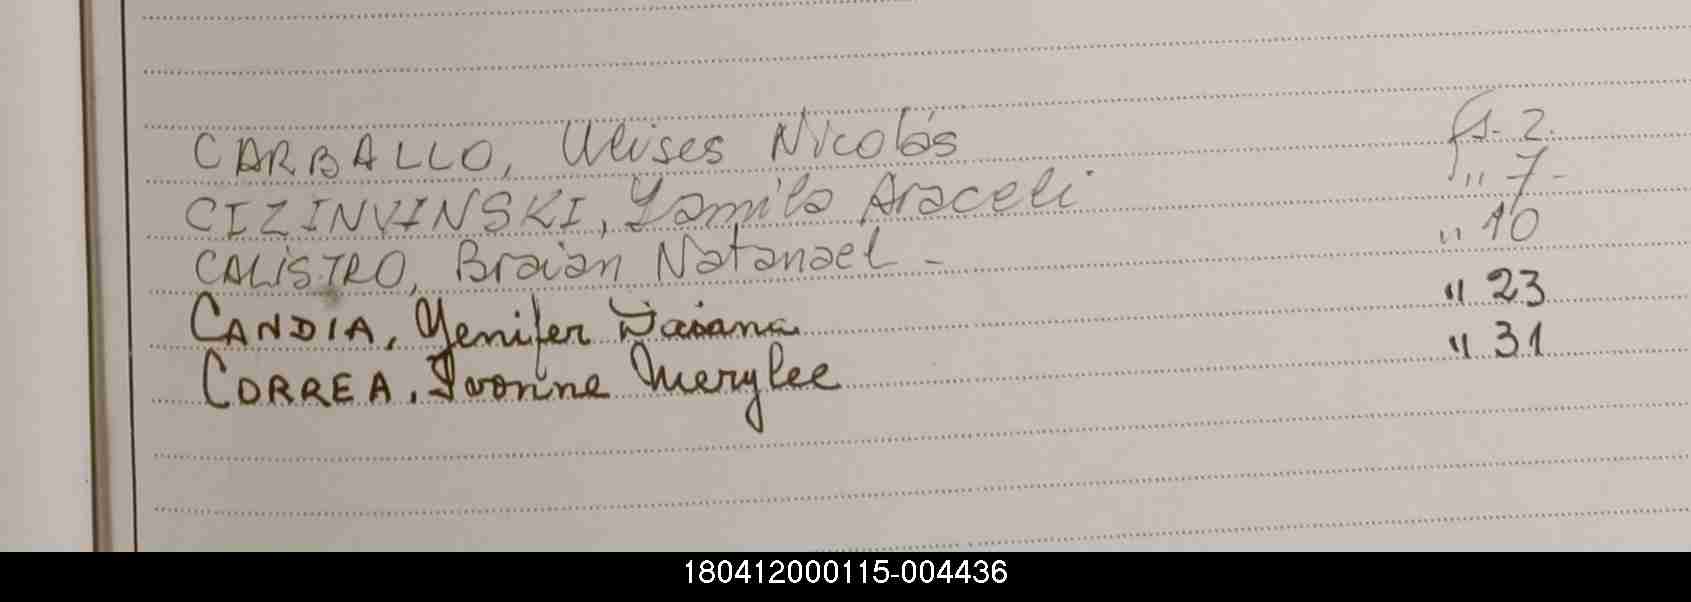 CARBALLO, Ulises Nicolás fs. 2.
CIZINVINSKI, Yamila Araceli " 7 -
CALISTRO, Braian Natanael - " 10
CANDIA, Yenifer Daiana " 23
CORREA, Ivonne Merylee " 31
180412000115-004436